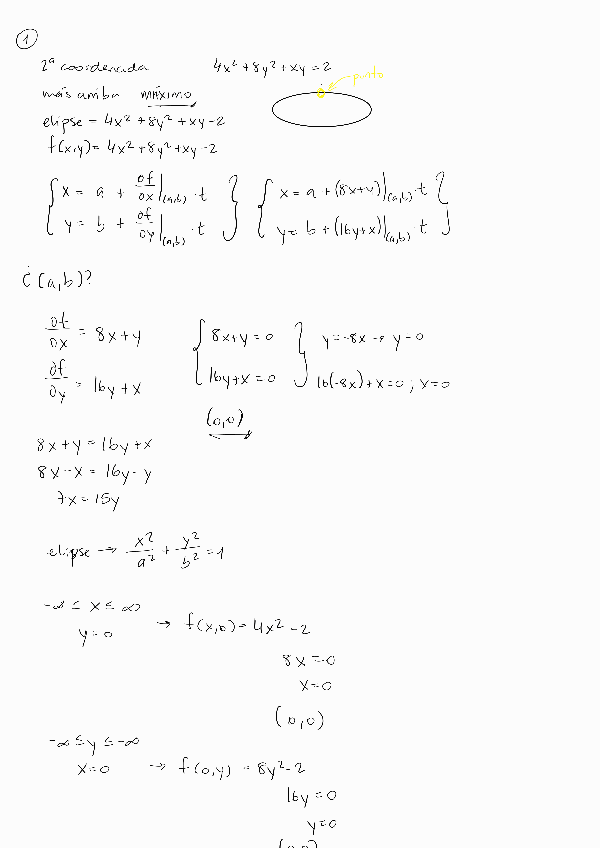 1
2ª coordenada 4x² + 8y² + xy = 2
punto
más arriba MÁXIMO
elipse = 4x² + 8y² + xy - 2
f(x,y) = 4x² + 8y² + xy - 2
{ x = a + ∂f/∂x|(a,b) · t } { x = a + (8x+y)|(a,b) · t }
{ y = b + ∂f/∂y|(a,b) · t } { y = b + (16y+x)|(a,b) · t }
¿(a,b)?
∂f/∂x = 8x + y { 8x+y = 0 } y = -8x → y = 0
∂f/∂y = 16y + x { 16y+x = 0 } 16(-8x) + x = 0 ; x = 0
(0,0)
8x + y = 16y + x
8x - x = 16y - y
7x = 15y
elipse → x²/a² + y²/b² = 1
-∞ ≤ x ≤ ∞
y = 0 → f(x,0) = 4x² - 2
8x = 0
x = 0
(0,0)
-∞ ≤ y ≤ -∞
x = 0 → f(0,y) = 8y² - 2
16y = 0
y = 0
(0,0)